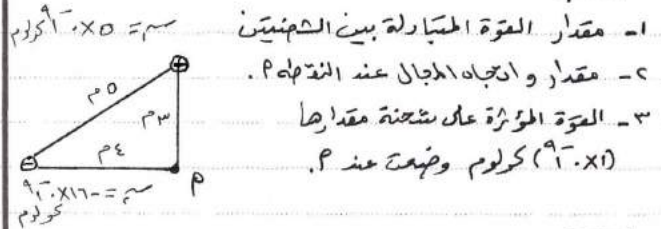 ١- مقدار القوة المتبادلة بين الشحنتين
٢- مقدار واتجاه المجال عند النقطة م.
٣- القوة المؤثرة على شحنة مقدارها
(١×١٠⁻⁹) كولوم وضعت عند م.
س = ٥×١٠⁻⁹ كولوم
+
٥ م
٣ م
٤ م
-
م
س = -١٦×١٠⁻⁹
كولوم